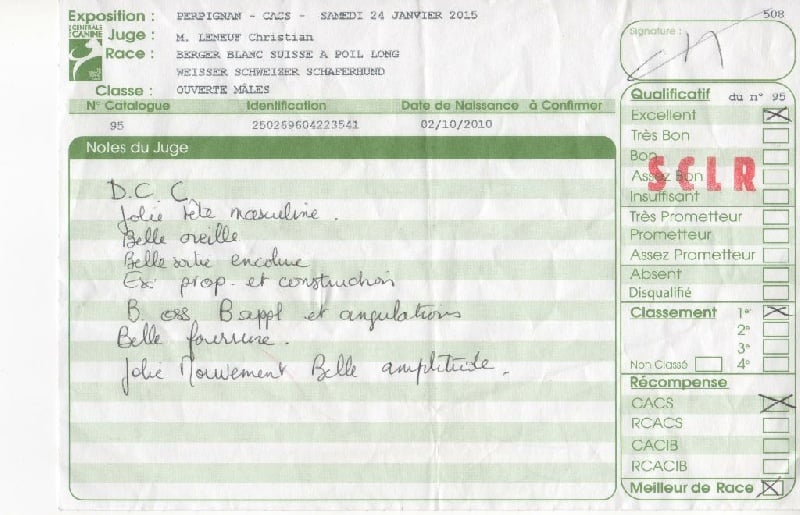 Exposition : PERPIGNAN - CACS - SAMEDI 24 JANVIER 2015
508
CENTRALE CANINE
Juge : M. LENEUF Christian
Race : BERGER BLANC SUISSE A POIL LONG
WEISSER SCHWEIZER SCHAFERHUND
Classe : OUVERTE MÂLES
N° Catalogue Identification Date de Naissance à Confirmer
95 250269604223541 02/10/2010
Notes du Juge
D.C.C.
Jolie tête masculine.
Belle oreille
Belle sortie encolure
Ex. prop. et construction
B. oss B appl et angulations
Belle fourrure.
Jolie Mouvement Belle amplitude.
Signature :
Qualificatif du n° 95
Excellent
Très Bon
Bon
Assez Bon
SCLR
Insuffisant
Très Prometteur
Prometteur
Assez Prometteur
Absent
Disqualifié
Classement 1er
2e
3e
Non Classé 4e
Récompense
CACS
RCACS
CACIB
RCACIB
Meilleur de Race